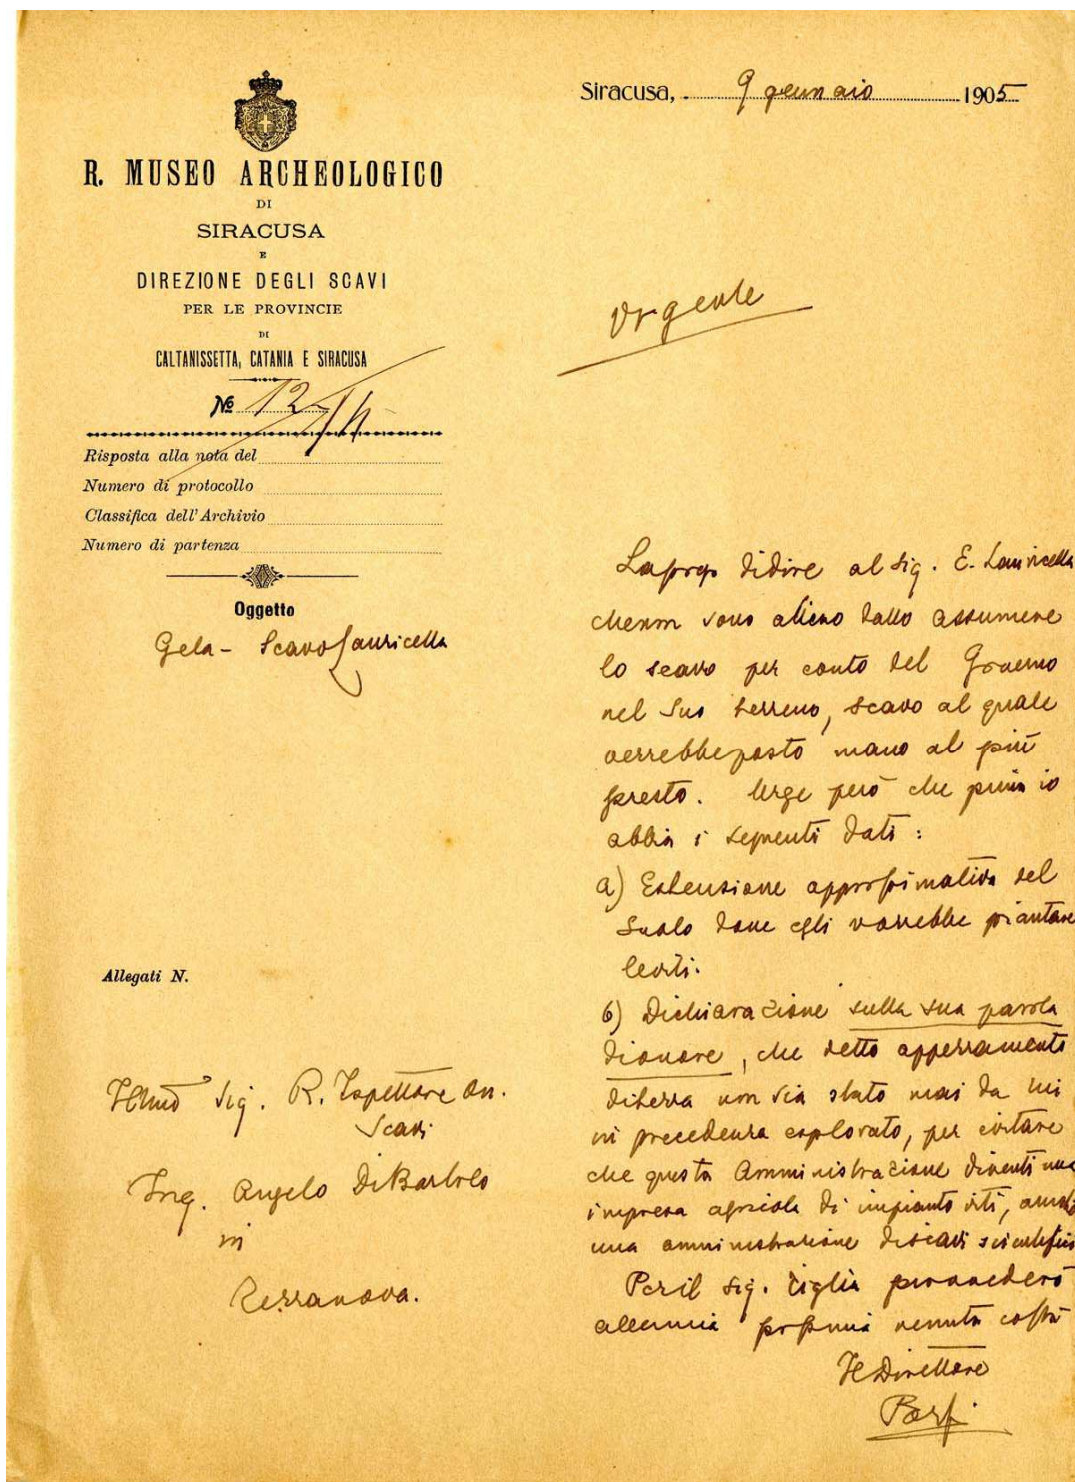 R. MUSEO ARCHEOLOGICO
DI
SIRACUSA
E
DIREZIONE DEGLI SCAVI
PER LE PROVINCIE
DI
CALTANISSETTA, CATANIA E SIRACUSA
№ 12
Risposta alla nota del
Numero di protocollo
Classifica dell'Archivio
Numero di partenza
Oggetto
Gela - Scavo Lauricella
Allegati N.
Ill.mo Sig. R. Ispettore on.
Scavi
Ing. Angelo Di Bartolo
in
Terranova.
Siracusa, 9 gennaio 1905
Urgente
La prego di dire al Sig. E. Lauricella
che non sono alieno dallo assumere
lo scavo per conto del Governo
nel Suo terreno, scavo al quale
verrebbe posto mano al più
presto. Urge però che prima io
abbia i seguenti dati:
a) Estensione approssimativa del
suolo dove egli vorrebbe piantare
le viti.
b) Dichiarazione sulla sua parola
di onore, che detto appezzamento
di terra non sia stato mai da lui
in precedenza esplorato, per evitare
che questa Amministrazione diventi una
impresa agricola di impianto viti,
una amministrazione di scavi scientifici
Per il Sig. Ciglia provvederò
alla mia prossima venuta costà
Il Direttore
Orsi